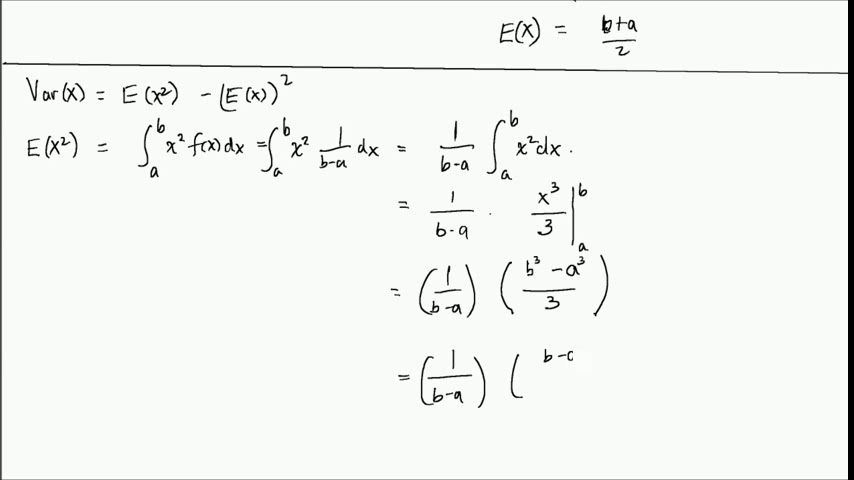 E(X) = b+a/2
Var(X) = E(X²) - (E(X))²
E(X²) = ∫_a^b x² f(x) dx = ∫_a^b x² 1/b-a dx = 1/b-a ∫_a^b x² dx.
= 1/b-a · x³/3 |_a^b
= (1/b-a) (b³-a³/3)
= (1/b-a) (b-a